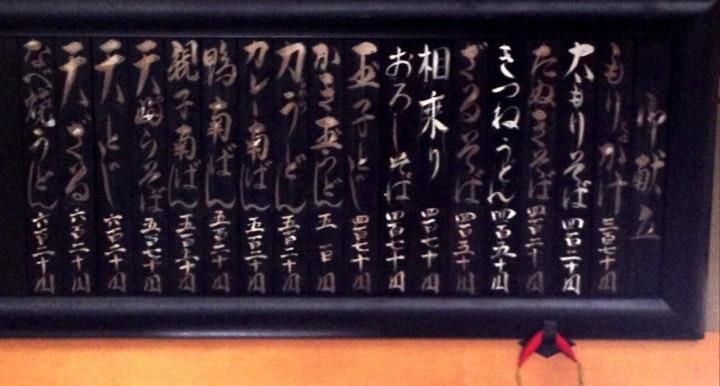 御献立
もり かけ 三百七十円
大もりそば 四百二十円
たぬきそば 四百二十円
きつねうどん 四百五十円
ざるそば 四百五十円
相乗り 四百七十円
おろしそば 四百七十円
玉子とじ 四百七十円
かき玉うどん 五百円
力うどん 五百二十円
カレー南ばん 五百二十円
鴨南ばん 五百二十円
親子南ばん 五百二十円
天ぷらそば 五百七十円
天とじ 六百二十円
天ざる 六百二十円
なべ焼うどん 六百二十円